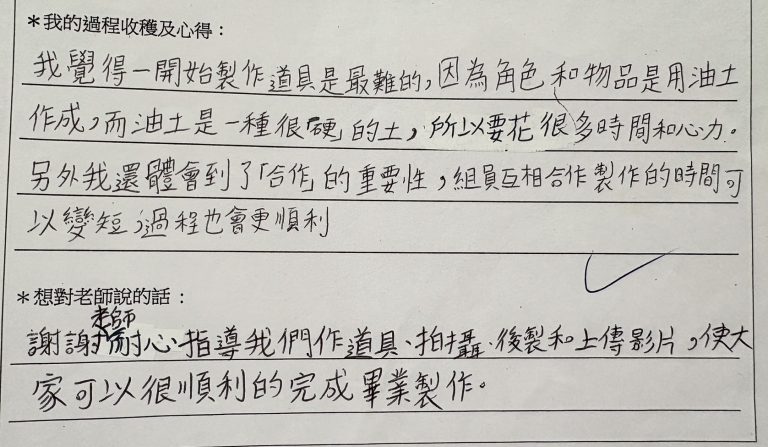 ＊我的過程收穫及心得：
我覺得一開始製作道具是最難的，因為角色和物品是用油土
作成，而油土是一種很「硬」的土，所以要花很多時間和心力。
另外我還體會到了「合作」的重要性，組員互相合作製作的時間可
以變短，過程也會更順利
＊想對老師說的話：
謝謝老師耐心指導我們作道具、拍攝、後製和上傳影片，使大
家可以很順利的完成畢業製作。